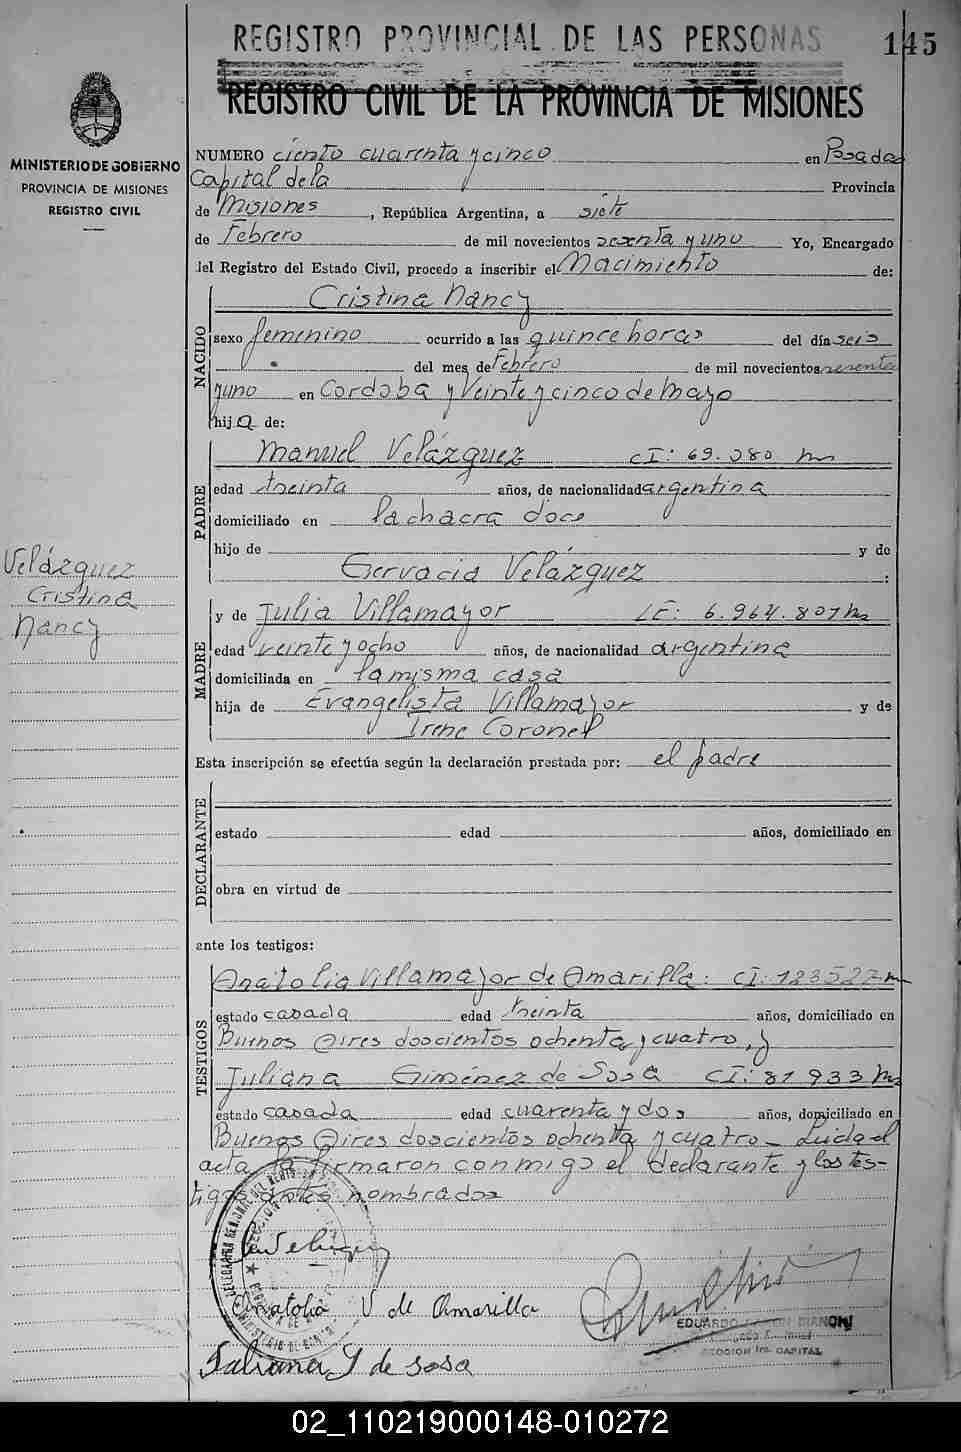 REGISTRO PROVINCIAL DE LAS PERSONAS
145
REGISTRO CIVIL DE LA PROVINCIA DE MISIONES
MINISTERIO DE GOBIERNO
PROVINCIA DE MISIONES
REGISTRO CIVIL
NUMERO ciento cuarenta y cinco en Posadas
Capital de la Provincia
de Misiones, República Argentina, a siete
de Febrero de mil novecientos sesenta y uno Yo, Encargado
del Registro del Estado Civil, procedo a inscribir el Nacimiento de:
NACIDO
Cristina Nancy
sexo femenino ocurrido a las quince horas del día seis
del mes de Febrero de mil novecientos sesenta
y uno en Cordoba y Veinte y cinco de Mayo
hija de:
PADRE
Manuel Velázquez CI: 69.080 Ms
edad treinta años, de nacionalidad argentina
domiciliado en la chacra doce
hijo de y de
Gervacia Velázquez :
Velázquez
Cristina
Nancy
MADRE
y de Julia Villamayor LC: 6.964.807 Ms
edad veinte y ocho años, de nacionalidad argentina
domiciliada en la misma casa
hija de Evangelista Villamayor y de
Irene Coronel
Esta inscripción se efectúa según la declaración prestada por: el padre
DECLARANTE
estado edad años, domiciliado en
obra en virtud de
ante los testigos:
TESTIGOS
Anatolia Villamayor de Amarilla: CI: 123527 Ms
estado casada edad treinta años, domiciliado en
Buenos Aires doscientos ochenta y cuatro, y
Juliana Giménez de Sosa CI: 81933 Ms
estado casada edad cuarenta y dos años, domiciliado en
Buenos Aires doscientos ochenta y cuatro - Leida el
acta la firmaron conmigo el declarante y los tes-
tigos antes nombrados
Anatolia V de Amarilla
EDUARDO BIANCHI
SECCION 1ra. CAPITAL
Juliana G de sosa
02_110219000148-010272